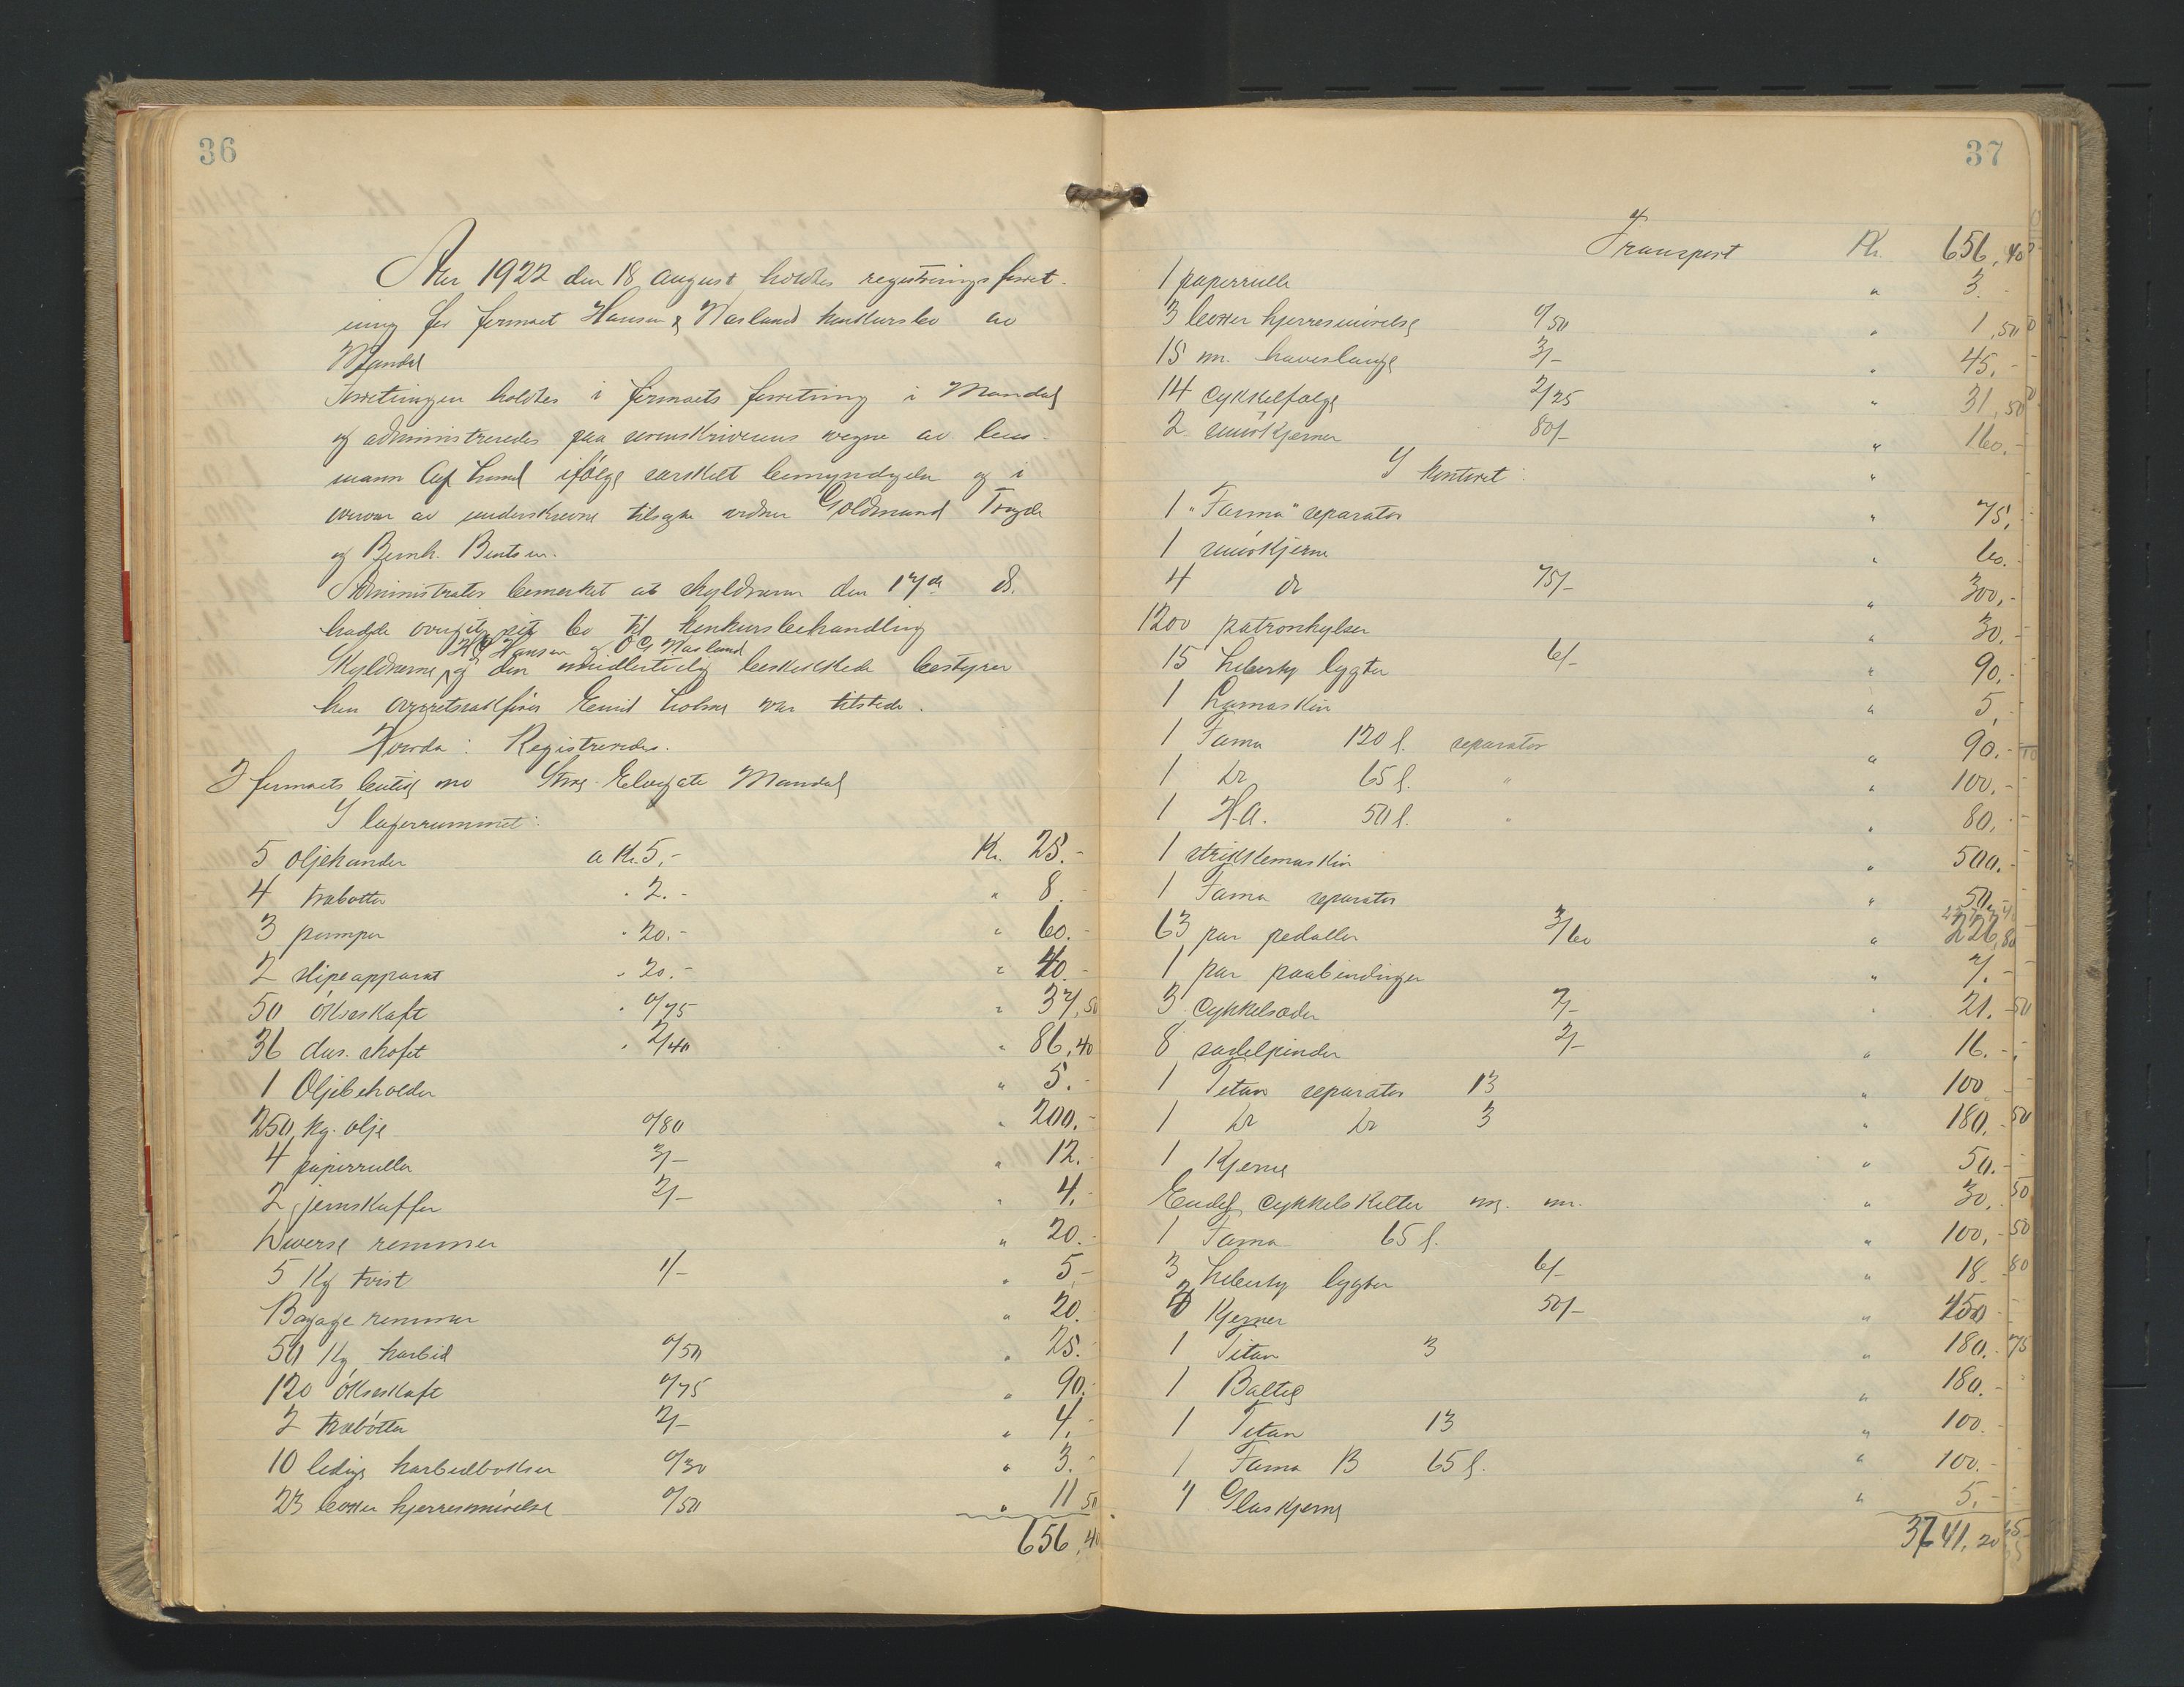 36
Aar 1922 den 18 august holdtes registreringsforret-
ning for firmaet Hansen & Nasland konkursbo av
Mandal
Forretningen holdtes i firmaets forretning i Mandal
og administreredes paa sorenskriverens vegne av lens-
mann Lund ifølge særskilt bemyndigelse og i
overvær av underskrevne tilsagte vidner Goldmund Tregde
og Bernh. Bentsen.
Administrator bemerket at skyldnerne den 17de ds.
hadde overgit sit bo til konkursbehandling
H Hansen & O G Nasland
Skyldnerne og den midlertidig beskikkede bestyrer
herr overretssakfører Emil Holme var tilstede.
Hvorda: Registreredes.
I firmaets butik no Store Elvegate Mandal
I lagerrummet:
5 oljekander a Kr. 5,- Kr. 25.-
4 træbøtter " 2.- " 8.-
3 pumper " 20.- " 60.-
2 slipeapparat " 20.- " 40.-
50 økseskaft " 0/75 " 37,50
36 dus. skafet " 2/40 " 86,40
1 Oljebeholder " 5.-
250 kg. olje 0/80 " 200.-
4 papirruller 3/- " 12.-
2 jernskuffer 2/- " 4.-
Diverse remmer " 20.-
5 Kg tvist 1/- " 5,-
Bagage remmer " 20.
50 Kg karbid 0/50 " 25.
120 økseskaft 0/75 " 90.-
2 træbøtter 2/- " 4.-
10 ledige karbidbokser 0/30 " 3.-
23 bokser kjerresmørelse 0/50 " 11 50
656,40
37
Transport Kr. 656,40
1 papirrulle " 3.-
3 bokser kjerresmørelse 0/50 " 1,50
15 m. haveslange 3/- " 45.-
14 cykkelfælge 2/25 " 31,50
2 smørkjerner 80/- " 160.-
I kontoret: "
1 "Farma" separator " 75,
1 smørkjerne " 60.-
4 do 75/- " 300,-
1200 patronhylser " 30.
15 Liberty lygter 6/- " 90,-
1 Lamaskin " 5,-
1 Fama 120 l. separator " 90.-
1 do 65 l. " " 100,-
1 H.A. 50 l. " " 80,-
1 strikkemaskin " 500.-
1 Fama separator " 50,-
63 par pedaller 3/60 " 226,80
1 par paabindinger " 7.-
3 cykkelsæder 7/- " 21.-
8 sadelpinder 2/- " 16.-
1 Titan separator 13 " 100
1 do do 3 " 180.
1 Kjerne " 50.-
Endel cykkelskilter m. m. " 30,
1 Fama 65 l. " 100,-
3 Liberty lygter 6/- " 18
Kjerner 50/- " 450
1 Titan 3 " 180.-
1 Baltic " 180.-
1 Titan 13 " 100.
1 Fama B 65 l. " 100.-
1 Glaskjerne " 5,-
3741,20